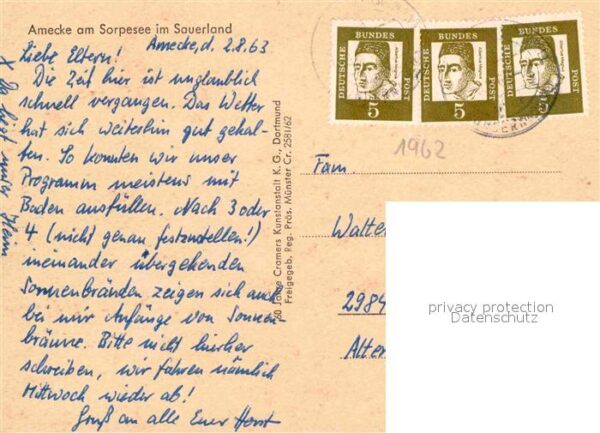 Amecke am Sorpesee im Sauerland
Amecke, d. 2.8.63
Liebe Eltern!
Die Zeit hier ist unglaublich
schnell vergangen. Das Wetter
hat sich weiterhin gut gehal-
ten. So konnten wir unser
Programm meistens mit
Baden ausfüllen. Nach 3 oder
4 (nicht genau festzustellen!)
ineinander übergehenden
Sonnenbränden zeigen sich auch
bei mir Anfänge von Sonnen-
bräune. Bitte nicht hierher
schreiben, wir fahren nämlich
Mittwoch wieder ab!
Gruß an alle Euer Horst
X Da liegt unser
60 Jahre Cramers Kunstanstalt K. G., Dortmund
Freigegeb. Reg. Präs. Münster Cr. 2581/62
DEUTSCHE BUNDES POST
5
DEUTSCHE BUNDES POST
5
DEUTSCHE BUNDES POST
5
1962
Fam.
Walte
2984
Alter
privacy protection
Datenschutz